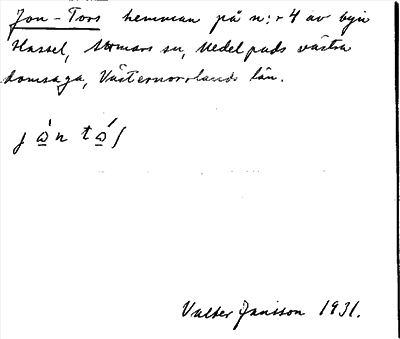 Jon-Tors hemman på n:r 4 av byn
Hassel, Stomars sn, Medelpads västra
domsaga, Västernorrlands län.
j ὰ n t ά ʃ
Valter Jansson 1931.